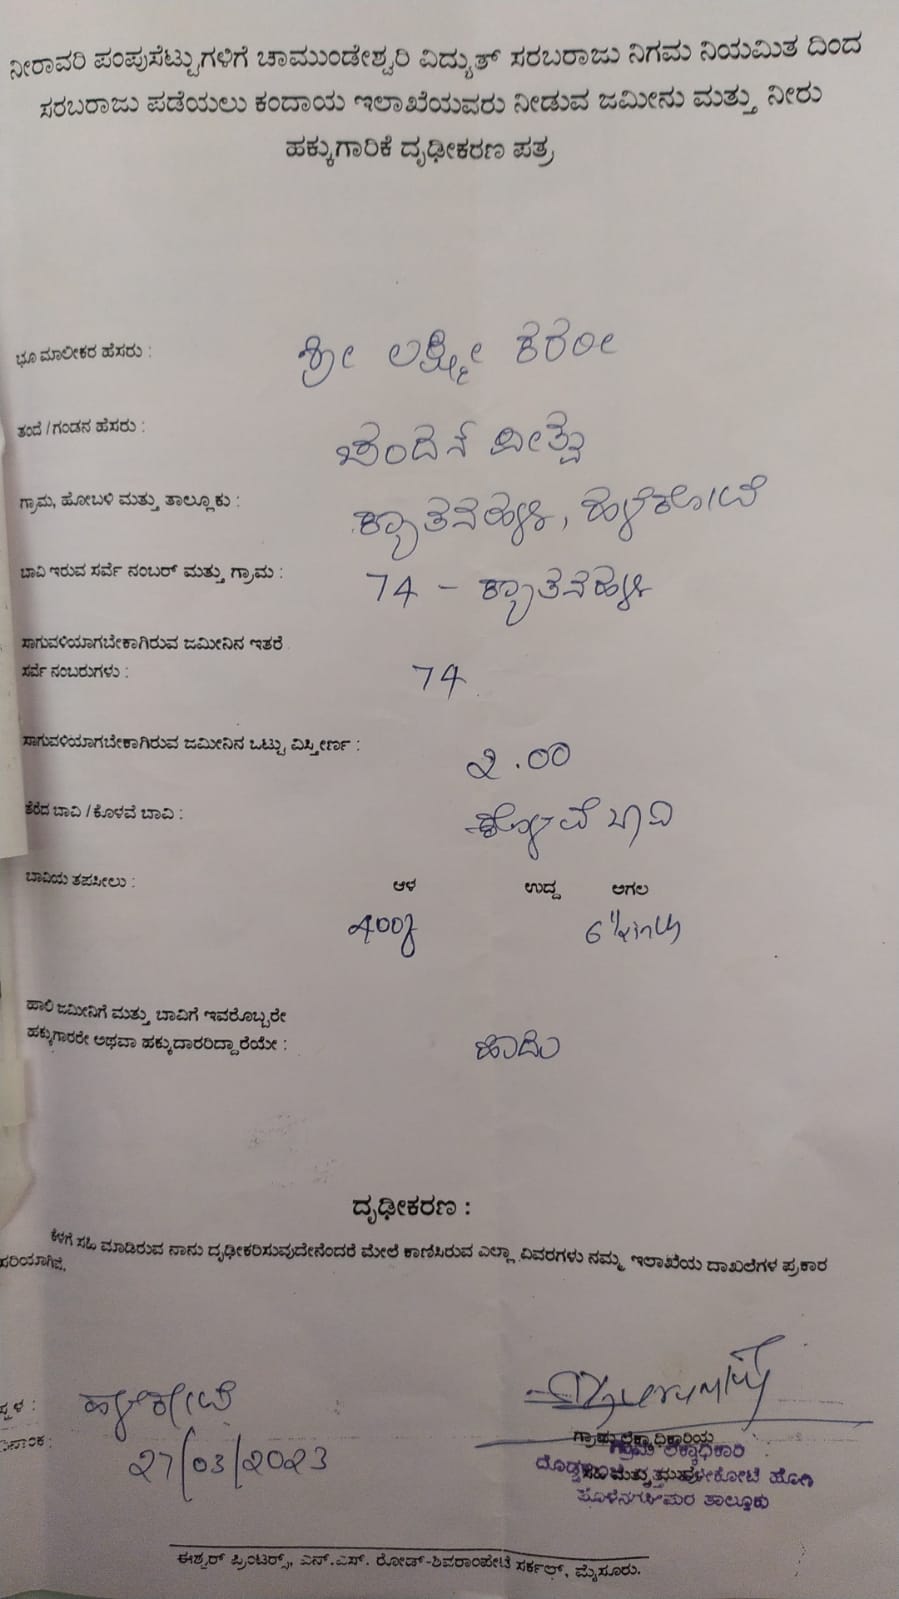 ನೀರಾವರಿ ಪಂಪುಸೆಟ್ಟುಗಳಿಗೆ ಚಾಮುಂಡೇಶ್ವರಿ ವಿದ್ಯುತ್ ಸರಬರಾಜು ನಿಗಮ ನಿಯಮಿತ ದಿಂದ
ಸರಬರಾಜು ಪಡೆಯಲು ಕಂದಾಯ ಇಲಾಖೆಯವರು ನೀಡುವ ಜಮೀನು ಮತ್ತು ನೀರು
ಹಕ್ಕುಗಾರಿಕೆ ದೃಢೀಕರಣ ಪತ್ರ
ಭೂ ಮಾಲೀಕರ ಹೆಸರು : ಶ್ರೀ
ತಂದೆ / ಗಂಡನ ಹೆಸರು :
ಗ್ರಾಮ, ಹೋಬಳಿ ಮತ್ತು ತಾಲ್ಲೂಕು : ಕ್ಯಾತನಹಳ್ಳಿ, ಹಳೇಕೋಟೆ
ಬಾವಿ ಇರುವ ಸರ್ವೆ ನಂಬರ್ ಮತ್ತು ಗ್ರಾಮ : 74 - ಕ್ಯಾತನಹಳ್ಳಿ
ಸಾಗುವಳಿಯಾಗಬೇಕಾಗಿರುವ ಜಮೀನಿನ ಇತರೆ
ಸರ್ವೆ ನಂಬರುಗಳು : 74
ಸಾಗುವಳಿಯಾಗಬೇಕಾಗಿರುವ ಜಮೀನಿನ ಒಟ್ಟು ವಿಸ್ತೀರ್ಣ : 2.00
ತೆರೆದ ಬಾವಿ / ಕೊಳವೆ ಬಾವಿ : ಕೊಳವೆ ಬಾವಿ
ಬಾವಿಯ ತಪಸೀಲು : ಆಳ ಉದ್ದ ಅಗಲ
6 1/2 inch
ಹಾಲಿ ಜಮೀನಿಗೆ ಮತ್ತು ಬಾವಿಗೆ ಇವರೊಬ್ಬರೇ
ಹಕ್ಕುಗಾರರೇ ಅಥವಾ ಹಕ್ಕುದಾರರಿದ್ದಾರೆಯೇ : ಹೌದು
ದೃಢೀಕರಣ :
ಕೆಳಗೆ ಸಹಿ ಮಾಡಿರುವ ನಾನು ದೃಢೀಕರಿಸುವುದೇನೆಂದರೆ ಮೇಲೆ ಕಾಣಿಸಿರುವ ಎಲ್ಲಾ ವಿವರಗಳು ನಮ್ಮ ಇಲಾಖೆಯ ದಾಖಲೆಗಳ ಪ್ರಕಾರ
ಸರಿಯಾಗಿವೆ.
ಸ್ಥಳ : ಹಳೇಕೋಟೆ
ದಿನಾಂಕ : 27/03/2023
ಗ್ರಾಮ ಲೆಕ್ಕಾಧಿಕಾರಿಯ
ಗ್ರಾಮ ಲೆಕ್ಕಾಧಿಕಾರಿ
ಸಹಿ ಮತ್ತು ಮುಹರು
ಹಳೇಕೋಟೆ ಹೋಬಳಿ
ಹೊಳೆನರಸೀಪುರ ತಾಲ್ಲೂಕು
ಈಶ್ವರ್ ಪ್ರಿಂಟರ್ಸ್, ಎನ್.ಎಸ್. ರೋಡ್-ಶಿವರಾಂಪೇಟೆ ಸರ್ಕಲ್, ಮೈಸೂರು.